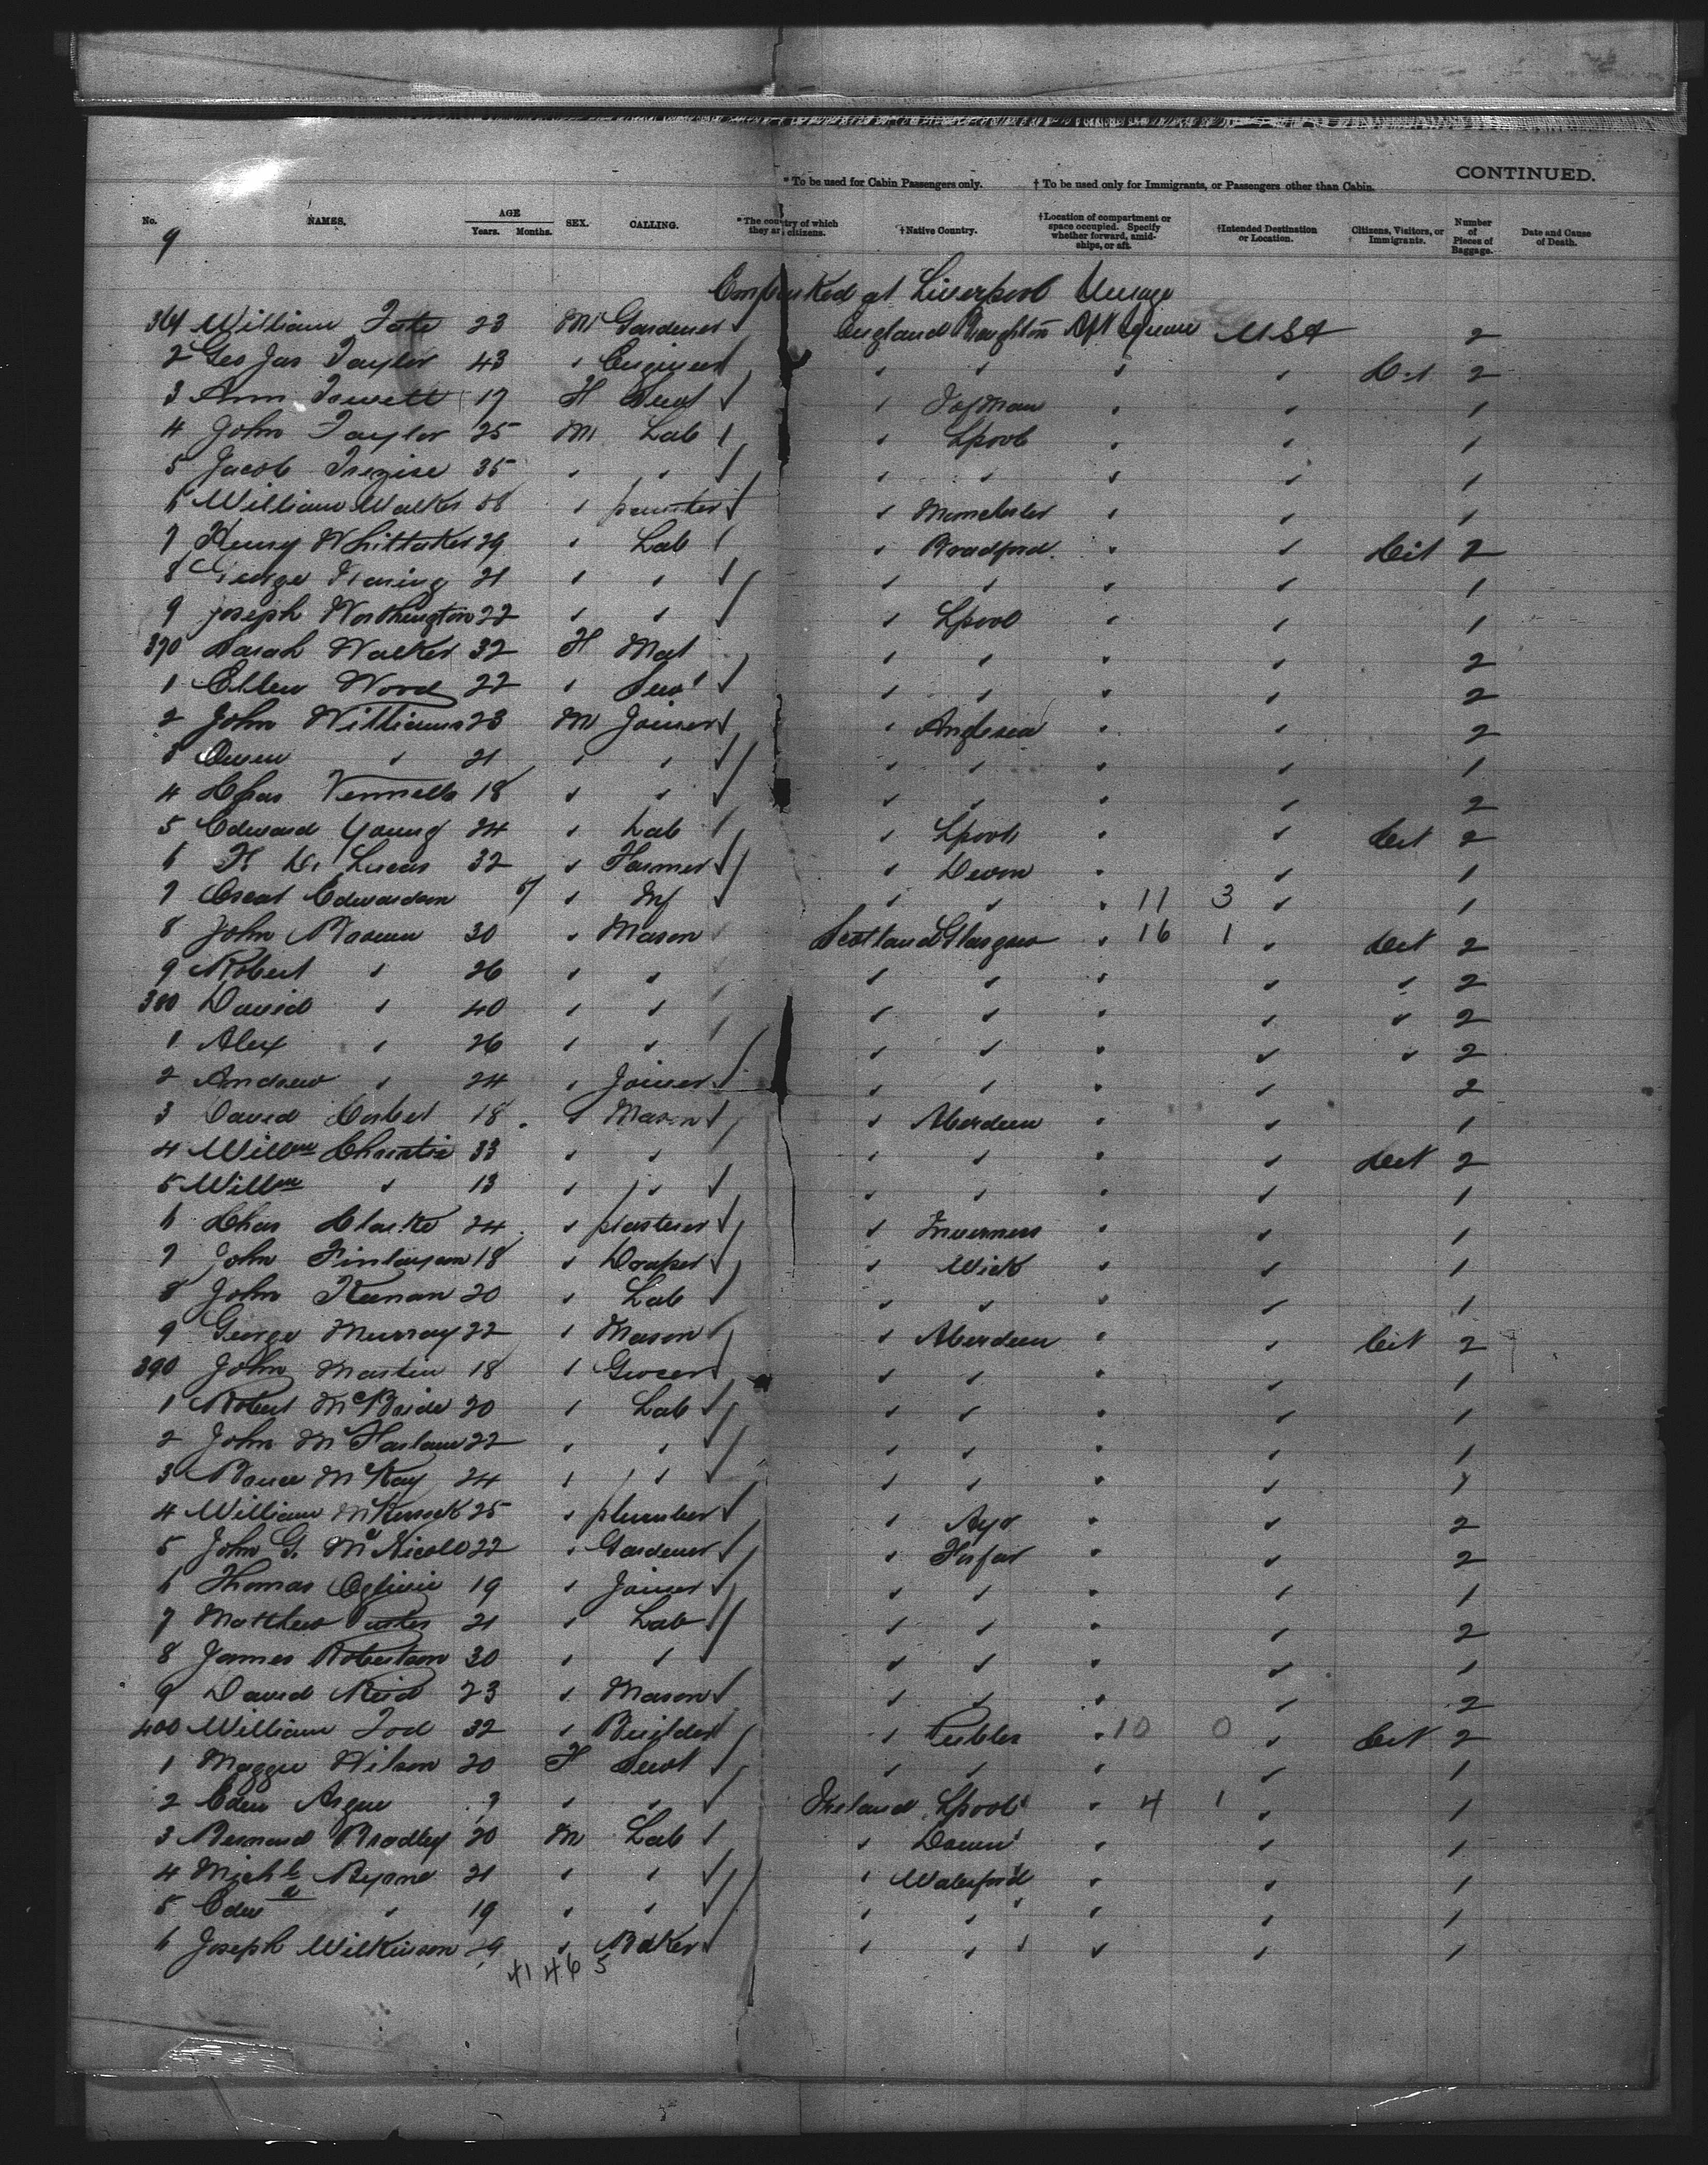 CONTINUED.
* To be used for Cabin Passengers only. † To be used only for Immigrants, or Passengers other than Cabin.
No. NAMES. AGE Years. Months. SEX. CALLING. * The country of which they are citizens. † Native Country. † Location of compartment or space occupied. Specify whether forward, amidships, or aft. † Intended Destination or Location. Citizens, Visitors, or Immigrants. Number of Pieces of Baggage. Date and Cause of Death.
9
Embarked at Liverpool
William Tate 23 M Gardener England Aft U.S.A 2
2 Geo Jas Taylor 43 " Engineer " " " " Cit 2
3 Ann 17 F Servt " " " 1
4 John Taylor 25 M Lab " Lpool " " 1
5 Jacob Trezise 35 " " " " " " 1
6 William Walker 58 " " Manchester " " 1
7 Henry Whittaker 29 " Lab " Bradford " " Cit 2
8 George 21 " " " " " " 1
9 Joseph Worthington 22 " " " Lpool " " 1
370 Sarah Walker 32 F Mat " " " " 2
1 Ellen Wood 22 " Serv " " " " 2
2 John Williams 23 M Joiner " Anglesea " " 2
3 Owen " 21 " " " " " " 1
4 Chas 18 " " " " " " 2
5 Edward Young 24 " Lab " Lpool " " Cit 2
6 Lucas 32 " Farmer " Devon " " 1
7 Oscar Edwardson " Inf " " " 11 3 " 1
8 John Brown 30 " Mason Scotland Glasgow " 16 1 " Cit 2
9 Robert " 26 " " " " " " " 2
380 David " 40 " " " " " " " 2
1 Alex " 26 " " " " " " " 2
2 Andrew " 24 " Joiner " " " " 2
3 David Corbet 18 " Mason " Aberdeen " " 1
4 Willm Christie 33 " " " " " " Cit 2
5 Willm " 13 " " " " " " 1
6 Chas Clarke 24 " plasterer " Inverness " " 1
7 John Finlayson 18 " Draper " Wick " " 1
8 John Keenan 20 " Lab " " " " 1
9 George Murray 22 " Mason " Aberdeen " " Cit 2
390 John Martin 18 " Grocer " " " " 1
1 Robert McBride 20 " Lab " " " " 1
2 John McFarlane 22 " " " " " " 1
3 Bruce McKay 24 " " " " " " 1
4 William 25 " plumber " Ayr " " 2
5 John G. McNicoll 22 " Gardener " Forfar " " 2
6 Thomas Ogilvie 19 " Joiner " " " " 1
7 Matthew 21 " Lab " " " " 2
8 James Robertson 30 " " " " " " 1
9 David Reid 23 " Mason " " " " 2
400 William Tod 32 " Builder " Peebles " 10 0 " Cit 2
1 Maggie Wilson 20 F Servt " " " " 1
2 Argue " " Ireland Lpool " 4 1 " 1
3 Bernard Bradley 20 M Lab " Down " " 1
4 Michl Byrne 21 " " " Waterford " " 1
5 Edwd " 19 " " " " " " 1
6 Joseph Wilkinson " Baker " " " " 1
41 46 5